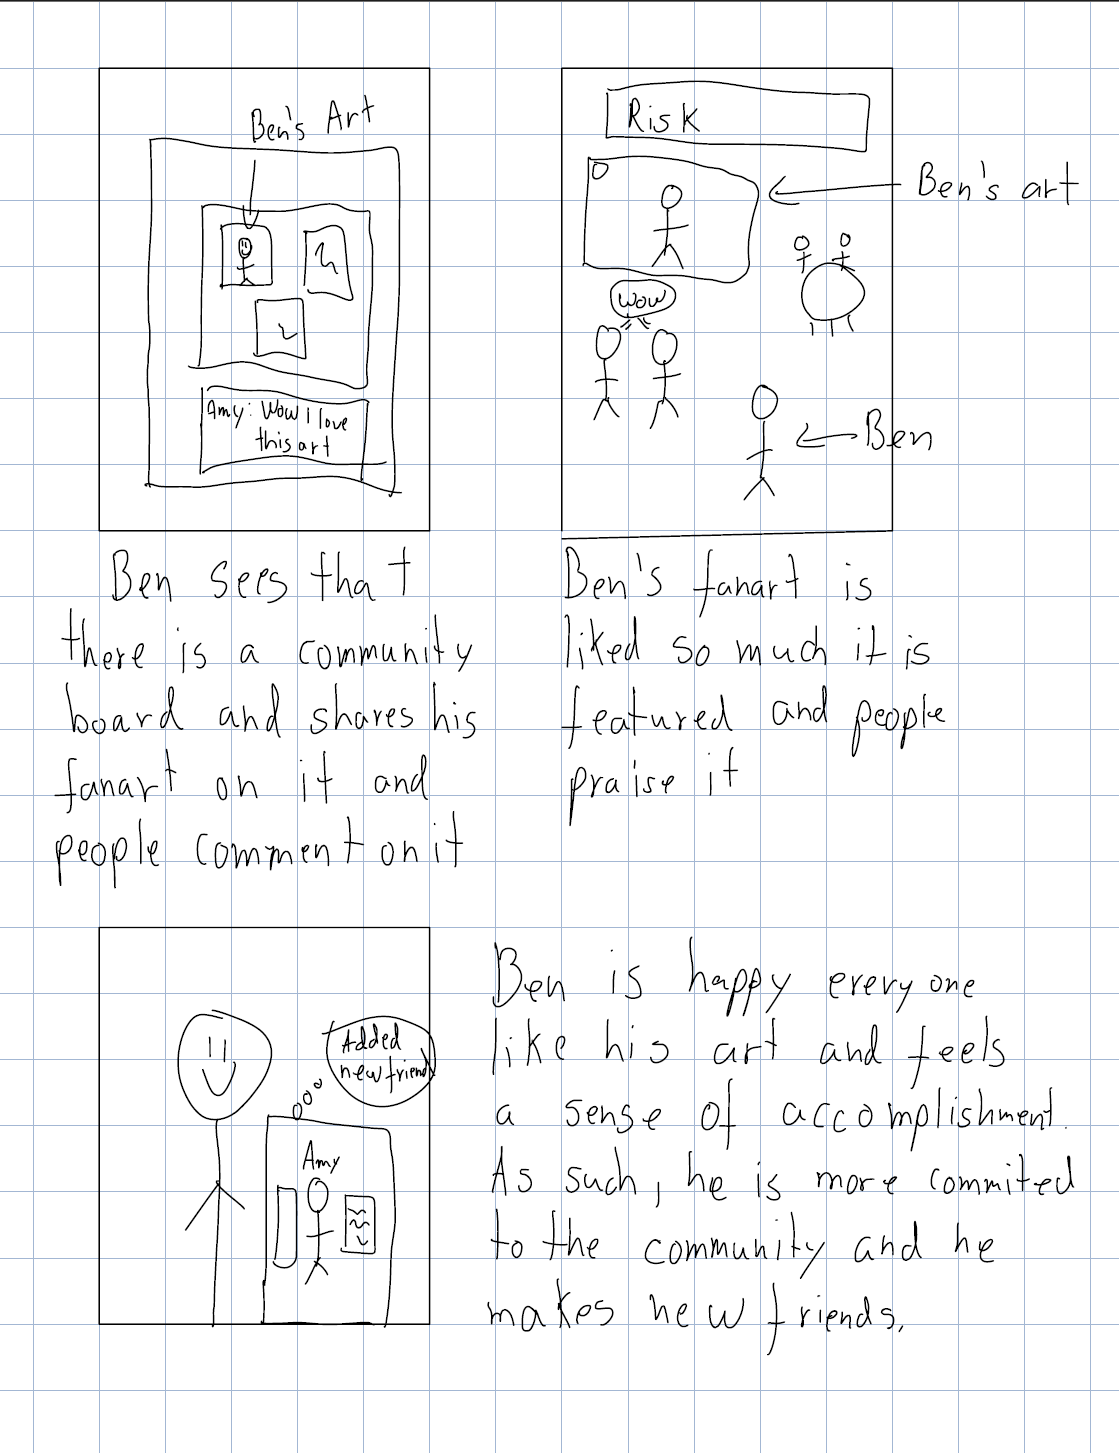 Ben's Art
Amy: Wow I love
this art
Risk
Ben's art
Wow
Ben
Ben sees that
there is a community
board and shares his
fanart on it and
people comment on it
Ben's fanart is
liked so much it is
featured and people
praise it
Added
new friend
Amy
Ben is happy everyone
like his art and feels
a sense of accomplishment.
As such, he is more commited
to the community and he
makes new friends.